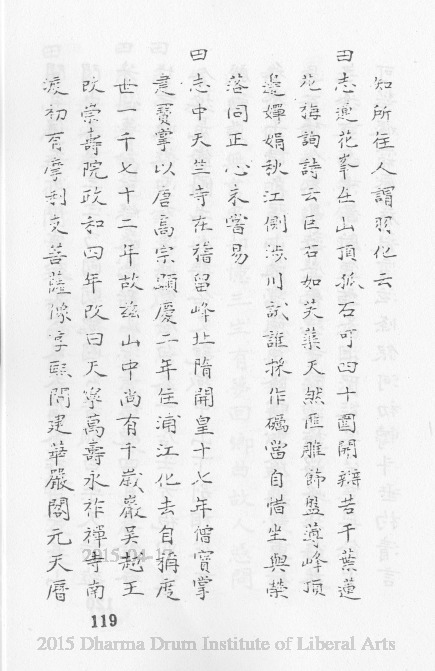 知所往人謂羽化云
田志蓮花峯在山頂孤石可四十圍開瓣若千葉蓮
花梅詢詩云巨石如芙蕖天然匪雕飾盤薄峰頂
邊嬋娟秋江側涉川試誰採作礪當自惜坐與榮
落同正心未嘗易
田志中天竺寺在稽留峰北隋開皇十七年僧寶掌
建寶掌以唐高宗顯慶二年住浦江化去自稱度
世一千七十二年故茲山中尚有千歲巖吳越王
改崇壽院政和四年改曰天寧萬壽永祚禪寺南
渡初有摩利支菩薩像淳熙間建華嚴閣元天曆
119
2015 Dharma Drum Institute of Liberal Arts